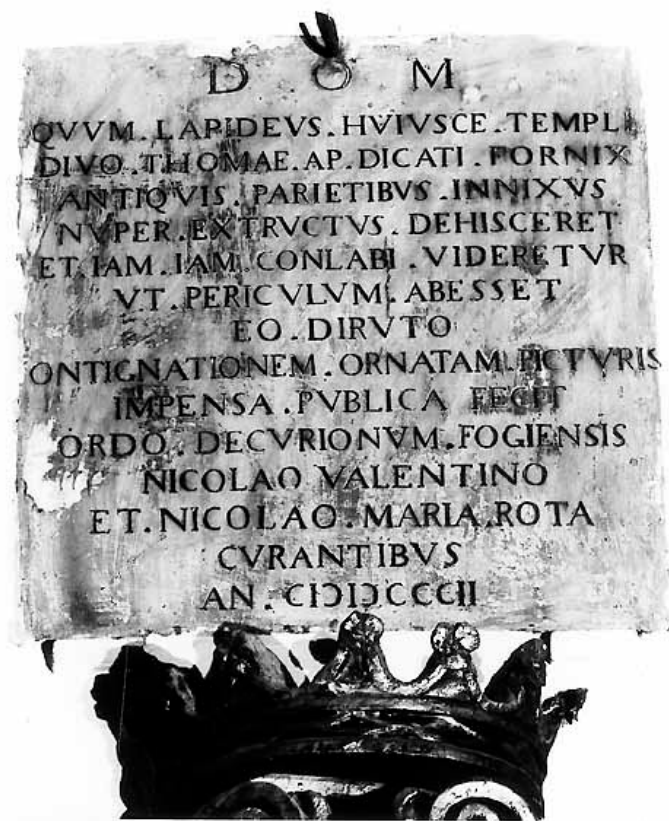 D O M
QVVM . LAPIDEVS . HVIVSCE . TEMPLI
DIVO . THOMAE . AP . DICATI . FORNIX
ANTIQVIS . PARIETIBVS . INNIXVS
NVPER . EXTRVCTVS . DEHISCERET
ET . IAM . IAM . CONLABI . VIDERETVR
VT . PERICVLVM . ABESSET
EO . DIRVTO
ONTIGNATIONEM . ORNATAM . PICTVRIS
IMPENSA . PVBLICA FECIT
ORDO . DECVRIONVM . FOGIENSIS
NICOLAO VALENTINO
ET . NICOLAO . MARIA . ROTA
CVRANTIBVS
AN . CIƆIƆCCCII